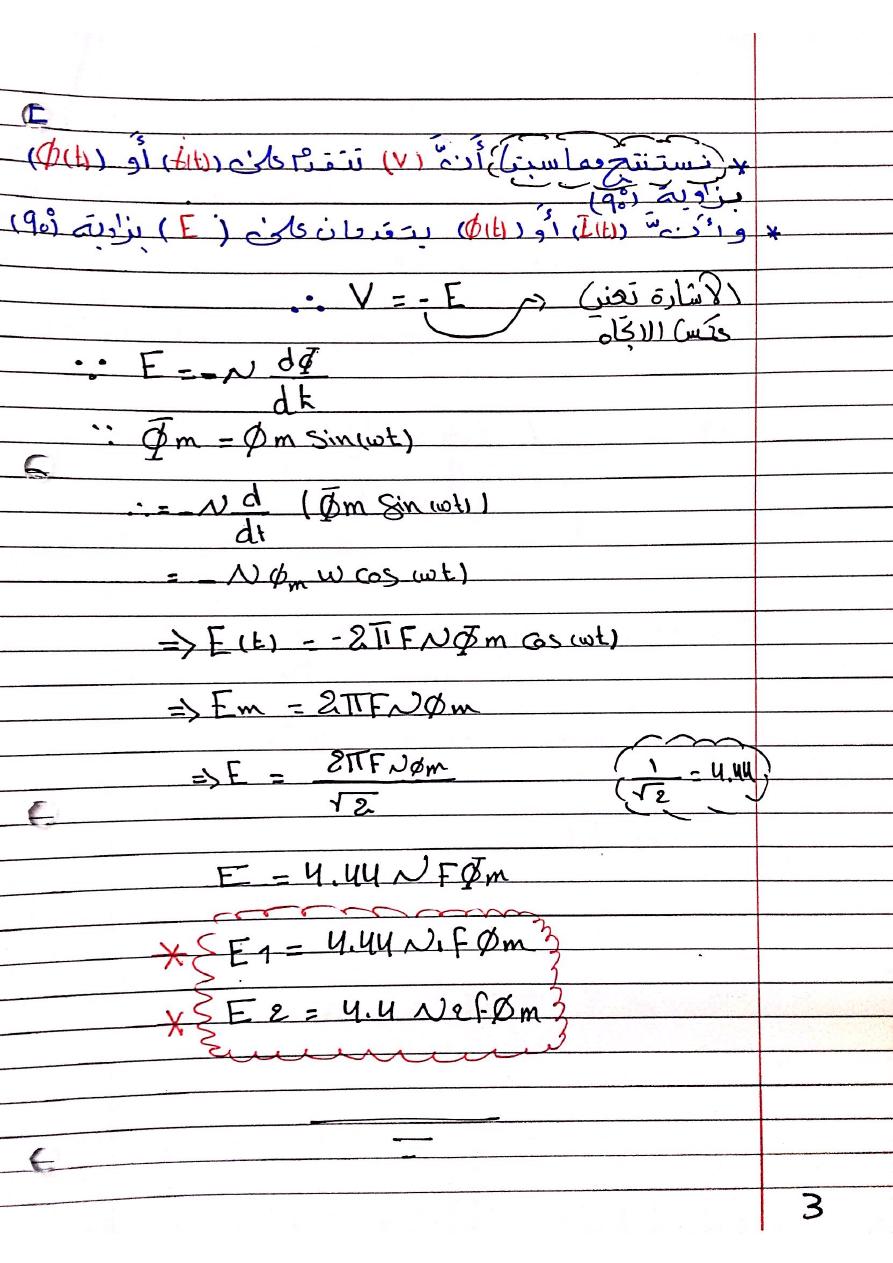 * (نستنتج مما سبق) أنّه (V) تتقدم على (i(t)) أو (Φ(t))
بزاوية (٩٠°)
* وأنّه (I(t)) أو (Φ(t)) يتقدمان على (E) بزاوية (٩٠°)
∴ V = - E → الاشارة تعني
عكس الاتجاه
∵ E = -N dΦ/dt
∵ Φ̄m = Φm Sin(wt)
∴ = -N d/dt (Φ̄m Sin(wt))
= - N Φm w cos(wt)
⇒ E(t) = -2πFNΦm Cos(wt)
⇒ Em = 2πFNΦm
⇒ E = 2πFNΦm/√2
1/√2 = 4.44
E = 4.44 N F Φm
* E1 = 4.44 N1 f Φm
* E2 = 4.4 N2 f Φm
3